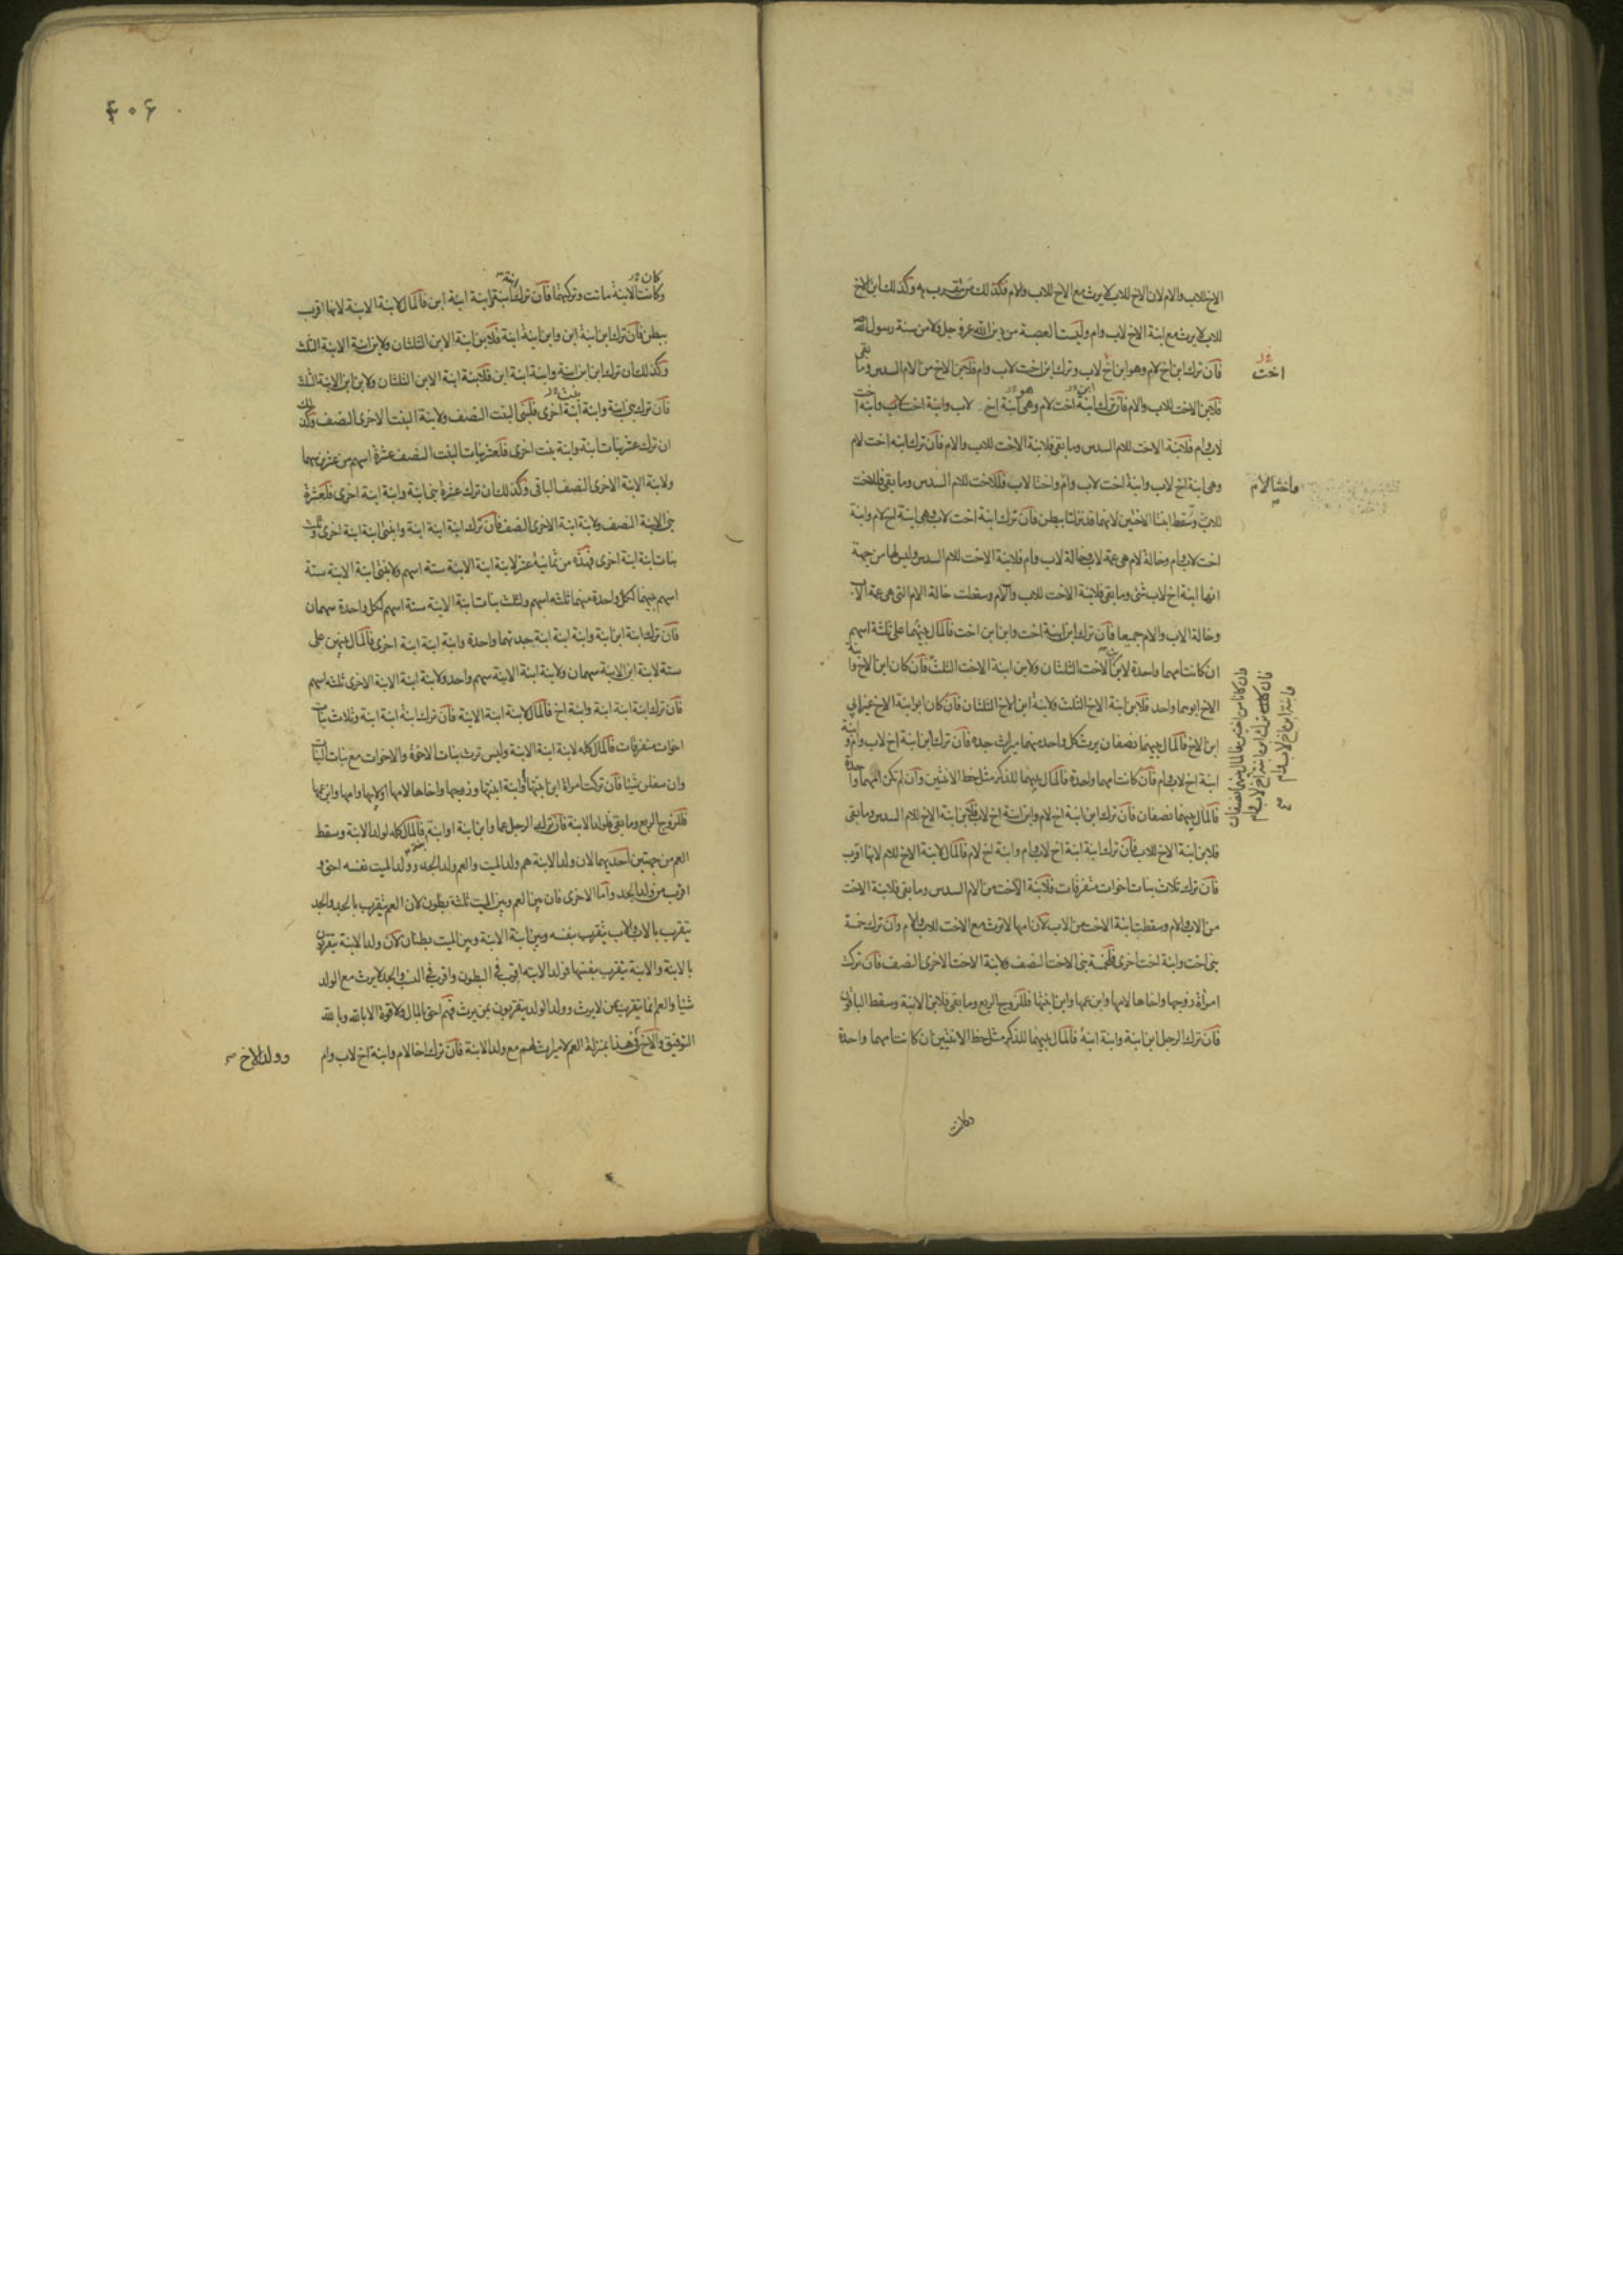 الاخ للاب والام لان الاخ للاب لا يرث مع الاخ للاب والام فكذلك من يتقرب به وكذلك ابن الاخ
للاب لا يرث مع ابنة الاخ لاب وام وليست العصبة من دين الله عز وجل ولا من سنة رسول الله
فان ترك ابن اخ لام وهو ابن اخ لاب وترك ابن اخت لاب وام فلابن الاخ من الام السدس وما بقى
اخت
فلابن الاخت للاب والام فان ترك ابنة اخت لام وهى ابنة اخ لاب وابنة اخت لاب وابنة اخت
لاب وام فلابنة الاخت للام السدس وما بقى فلابنة الاخت للاب والام فان ترك ابنة اخت لام
وهى ابنة اخ لاب وابنة اخت لاب وام واختا لاب فللاخت للام السدس وما بقى فللاخت
واختا لام
للاب وسقط ابنتا الاختين لانهما قد نزلتا ببطن فان ترك ابنة اخت لاب وهى ابنة اخ لام وابنة
اخت لاب وام وخالة لام هى عمة لاب وخالة لاب وام فلابنة الاخت للام السدس وليس لها من جهة
انها ابنة اخ لاب شئ وما بقى فلابنة الاخت للاب والام وسقطت خالة الام التى هى عمة الاب
وخالة الاب والام جميعا فان ترك ابن ابنة اخت وابن ابن اخت فالمال بينهما على ثلثة اسهم
ان كانت امهما واحدة لابن ابن الاخت الثلثان ولابن ابنة الاخت الثلث فان كان ابن الاخ وابنة
الاخ ابوهما واحد فلابن ابنة الاخ الثلث ولابنة ابن الاخ الثلثان فان كان ابو ابنة الاخ غير ابى
ابن الاخ فالمال بينهما نصفان يرث كل واحد منهما ميراث جده فان ترك ابن ابنة اخ لاب وام وابنة
ابنة اخ لاب وام فان كانت امهما واحدة فالمال بينهما للذكر مثل حظ الانثيين وان لم تكن امهما واحدة
فالمال بينهما نصفان فان ترك ابن ابنة اخ لام وابن ابنة اخ لاب فلابن ابنة الاخ للام السدس وما بقى
فلابن ابنة الاخ للاب فان ترك ابنة ابنة اخ لاب وام وابنة اخ لام فالمال لابنة الاخ للام لانها اقرب
فان ترك ثلاث بنات اخوات متفرقات فلابنة الاخت من الام السدس وما بقى فلابنة الاخت
من الاب والام وسقطت ابنة الاخت من الاب لان امها لا ترث مع الاخت للاب والام وان ترك خمسة
بنى اخت وابنة اخت اخرى فلخمسة بنى الاخت النصف ولابنة الاخت الاخرى النصف فان تركت
امراة زوجها واخاها لامها وابن عمها وابن ابنتها فللزوج الربع وما بقى فلابن الابنة وسقط الباقون
فان ترك الرجل ابن ابنة وابنة ابنة فالمال بينهما للذكر مثل حظ الانثيين ان كانت امهما واحدة
وكانت
كان
وكانت الابنة ماتت وتركتهما فان ترك ابنة ابنة وابنة ابنة ابن فالمال لابنة الابنة لانها اقرب
ببطن فان ترك ابن ابنة ابن وابن ابنة ابنة فلابن ابنة الابن الثلثان ولابن ابنة الابنة الثلث
وكذلك ان ترك ابن ابن ابنة وابنة ابنة ابن فلابنة ابنة الابن الثلثان ولابن ابن الابنة الثلث
فان ترك بنى ابنة وابنة ابنة اخرى فلبنى البنت النصف ولابنة البنت الاخرى النصف وكذلك
ان ترك عشر بنات ابنة وابنة بنت اخرى فلعشر بنات البنت النصف عشرة اسهم من عشرين سهما
ولابنة الابنة الاخرى النصف الباقى وكذلك ان ترك عشرة بنى ابنة وابنة ابنة اخرى فلعشرة
بنى الابنة النصف ولابنة ابنة الاخرى النصف فان ترك ابنة ابنة ابنة وابنتى ابنة ابنة اخرى وثلث
بنات ابنة ابنة اخرى فهذه من ثمانية عشر لابنة ابنة الابنة ستة اسهم ولابنتى ابنة الابنة ستة
اسهم بينهما لكل واحدة منهما ثلثه اسهم ولثلث بنات ابنة الابنة ستة اسهم لكل واحدة سهمان
فان ترك ابنة ابن ابنة وابنة ابنة ابنة جدتهما واحدة وابنة ابنة ابنة اخرى فالمال بينهن على
ستة لابنة ابن الابنة سهمان ولابنة ابنة الابنة سهم واحد ولابنة ابنة الابنة الاخرى ثلثه اسهم
فان ترك ابنة ابنة ابنة وابنة اخ فالمال لابنة ابنة الابنة فان ترك ابنة ابنة ابنة وثلاث بنات
اخوات متفرقات فالمال كله لابنة ابنة الابنة وليس ترث بنات الاخوة والاخوات مع بنات البنات
وان سفلن شيئا فان تركت امراة ابن ابنتها وابنة ابنتها وزوجها واخاها لامها او لابيها وامها وابن عمها
فللزوج الربع وما بقى فلولد الابنة فان ترك الرجل عما وابن ابنة او ابنة فالمال كله لولد الابنة وسقط
العم من جهتين احديهما لان ولد الابنة هم ولد الميت والعم ولد الجد وولد الميت نفسه احق و
اقرب من ولد الجد واما الاخرى فان بين العم وبين الميت ثلثة بطون لان العم يتقرب بالجد والجد
يتقرب بالاب والاب يتقرب بنفسه وبين ابنة الابنة وبين الميت بطنان لان ولد الابنة يتقربون
بالابنة والابنة تتقرب بنفسها فولد الابنة اقرب فى البطون واقرب فى النسب والجد لا يرث مع الولد
شيئا والعم انما يتقرب بمن لا يرث وولد الولد يتقربون بمن يرث فهم احق بالمال ولا قوة الا بالله وبالله
التوفيق والاخ فى هذا بمنزلة العم لا ميراث لهم مع ولد الابنة فان ترك اخا لام وابنة اخ لاب وام
وولد الاخ